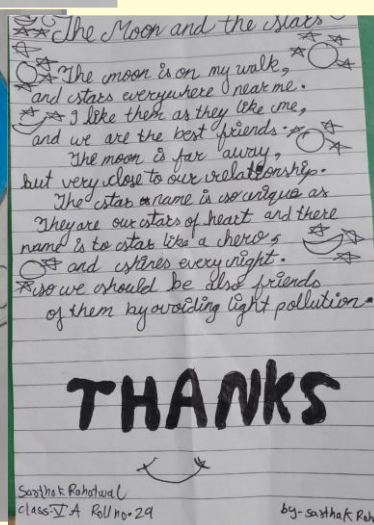 The Moon and the Stars
The moon is on my walk,
and stars everywhere near me.
I like them as they like me,
and we are the best friends.
The moon is far away,
but very close to our relationship.
The star name is so unique as
They are our stars of heart and there
name is to star like a hero,
and shines every night.
so we should be also friends
of them by avoiding light pollution.
THANKS
Sarthak Rahotwal
class-V A Roll no. 29
by- sarthak Rah